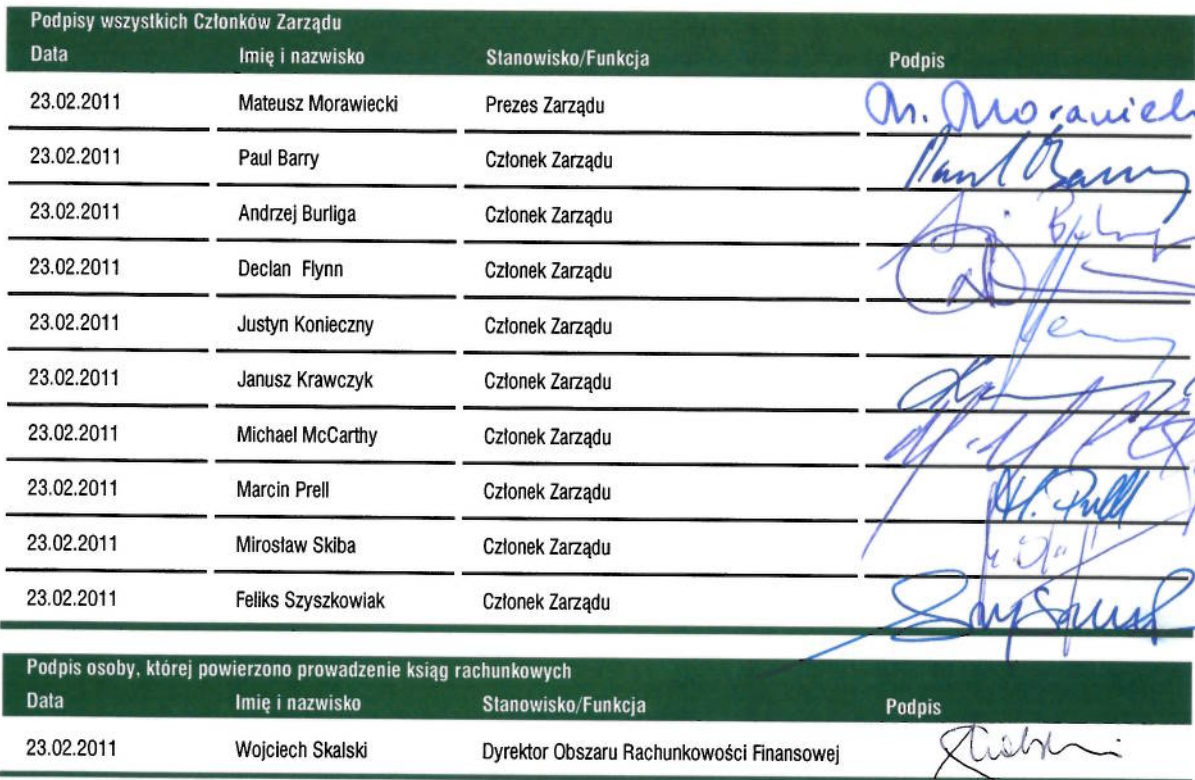 Podpisy wszystkich Członków Zarządu
Data Imię i nazwisko Stanowisko/Funkcja Podpis
23.02.2011 Mateusz Morawiecki Prezes Zarządu M. Morawiecki
23.02.2011 Paul Barry Członek Zarządu Paul Barry
23.02.2011 Andrzej Burliga Członek Zarządu
23.02.2011 Declan Flynn Członek Zarządu
23.02.2011 Justyn Konieczny Członek Zarządu
23.02.2011 Janusz Krawczyk Członek Zarządu
23.02.2011 Michael McCarthy Członek Zarządu
23.02.2011 Marcin Prell Członek Zarządu M. Prell
23.02.2011 Mirosław Skiba Członek Zarządu
23.02.2011 Feliks Szyszkowiak Członek Zarządu
Podpis osoby, której powierzono prowadzenie ksiąg rachunkowych
Data Imię i nazwisko Stanowisko/Funkcja Podpis
23.02.2011 Wojciech Skalski Dyrektor Obszaru Rachunkowości Finansowej